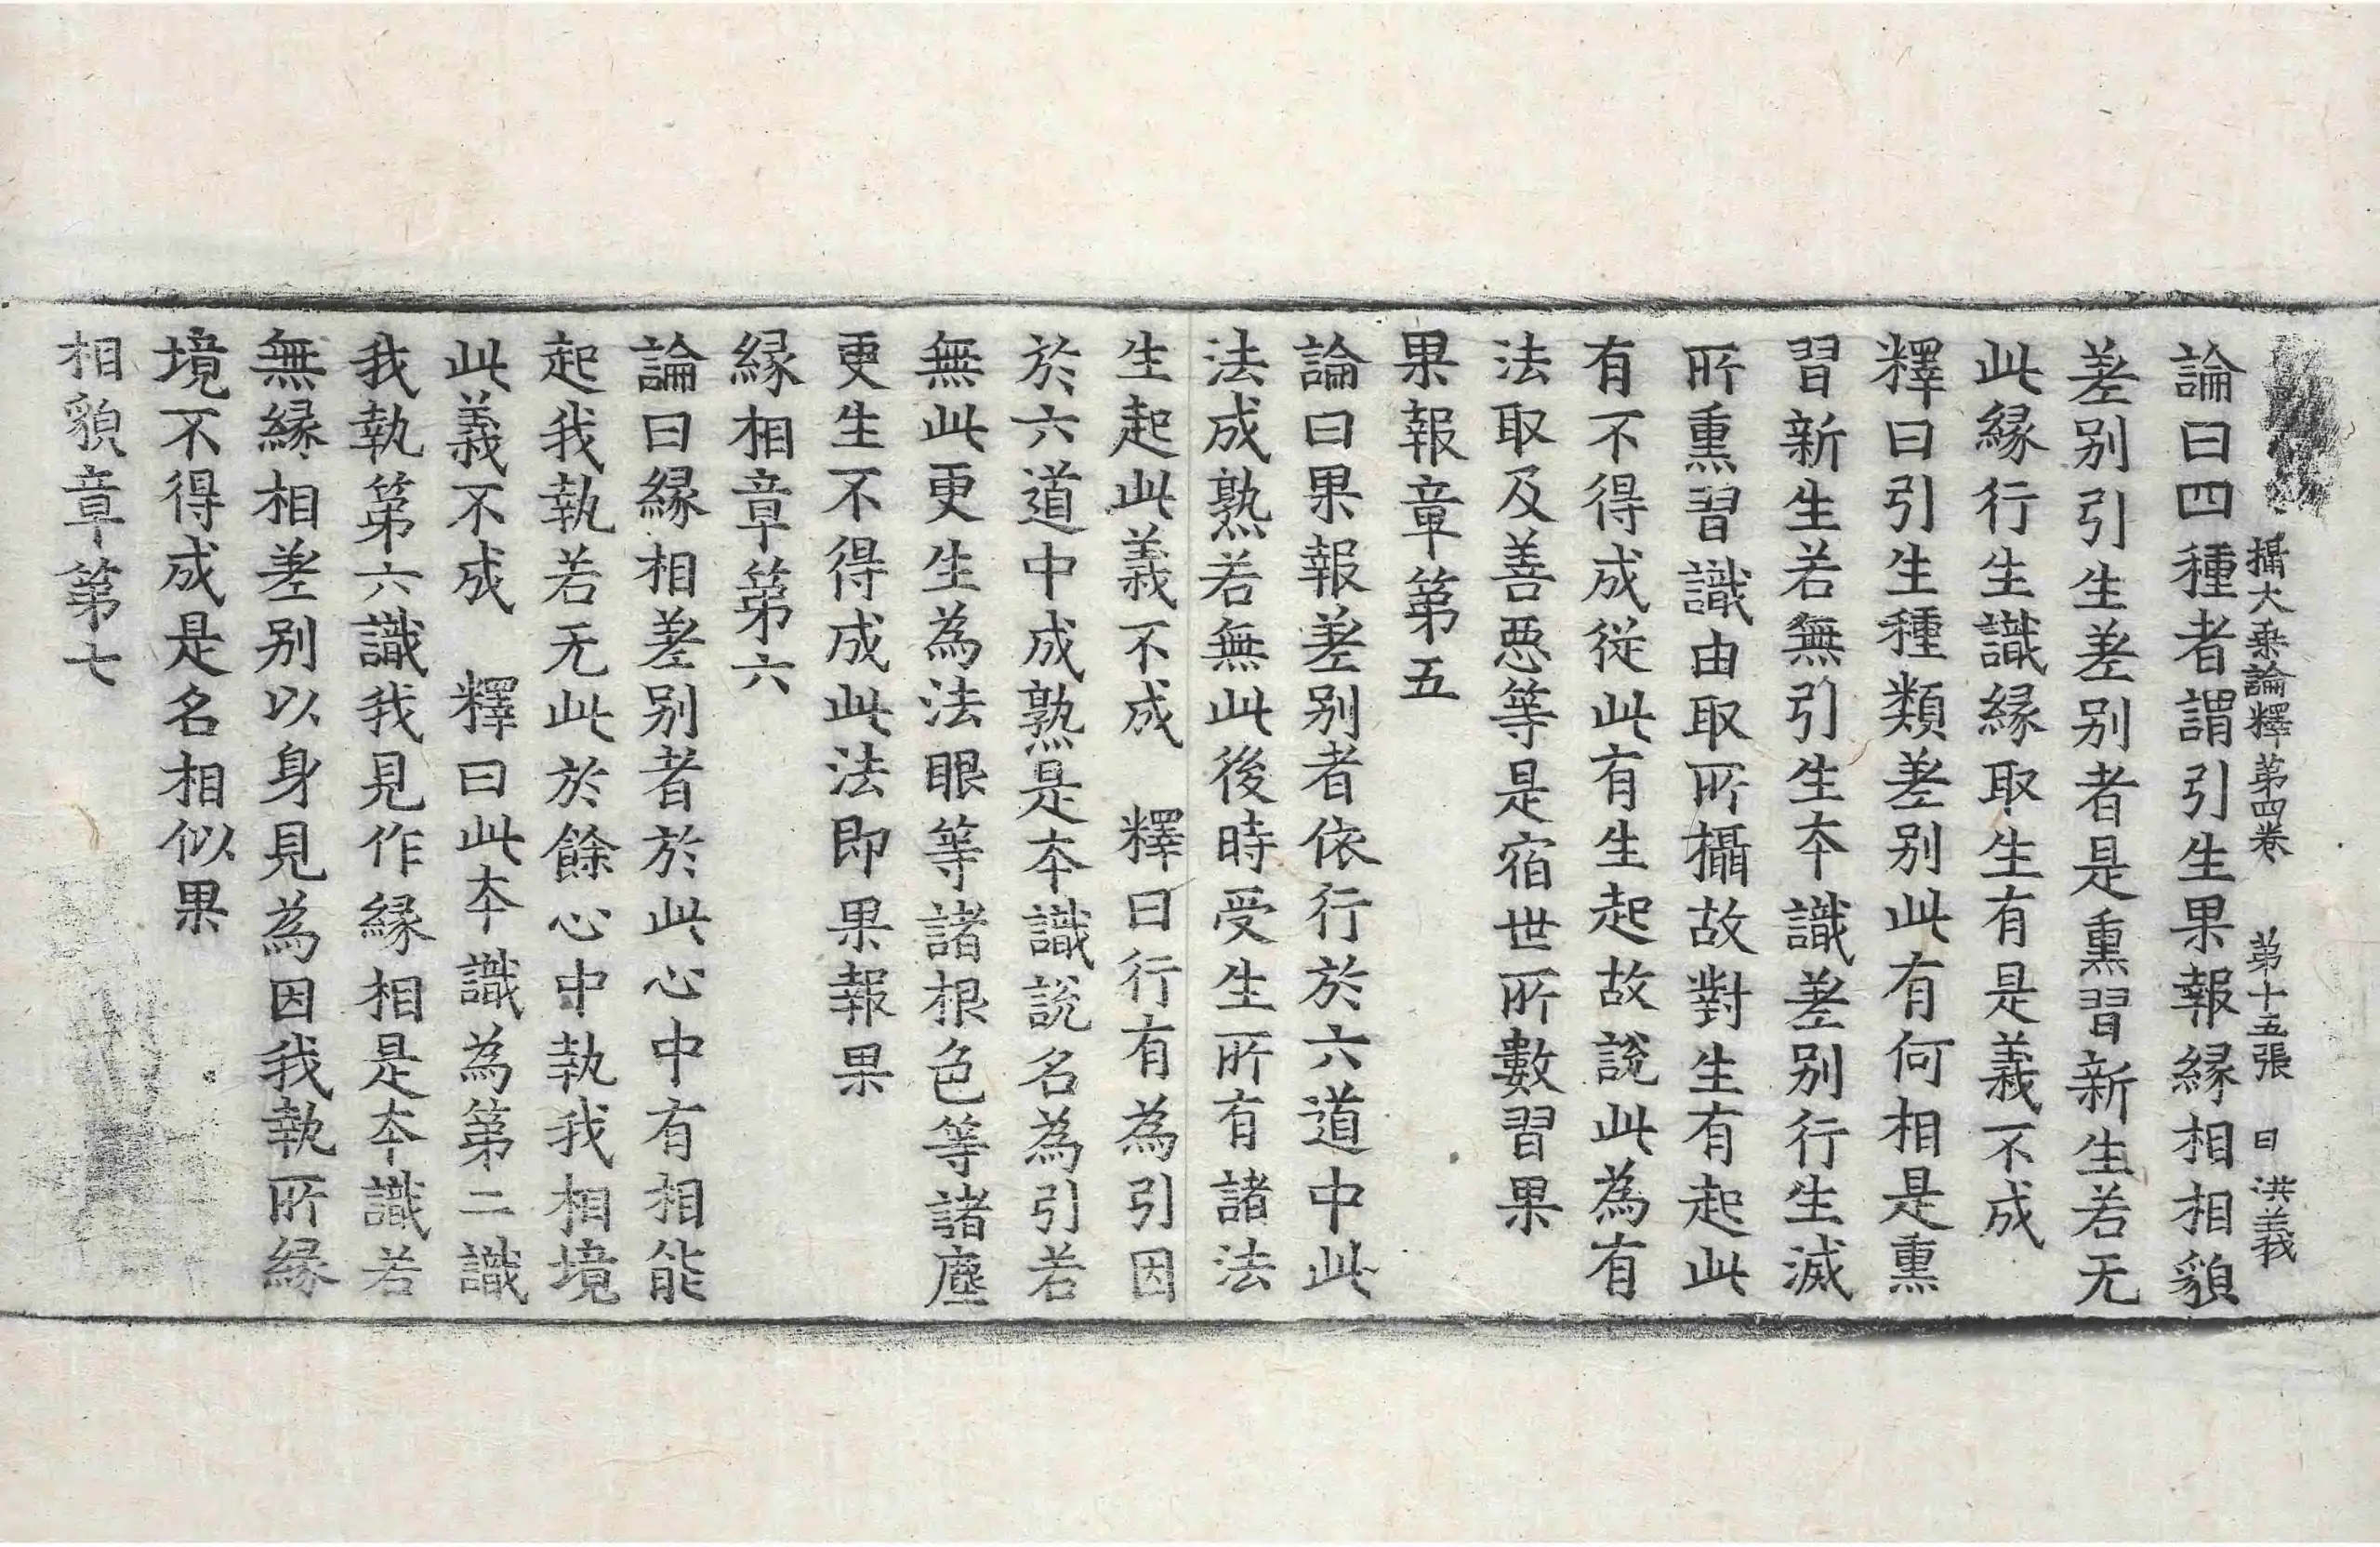 攝大乗論釋第四卷 第十五張 曰 洪義
論曰四種者謂引生果報縁相相貌
差别引生差别者是熏習新生若无
此縁行生識縁取生有是義不成
釋曰引生種類差别此有何相是熏
習新生若無引生夲識差别行生滅
所熏習識由取所攝故對生有起此
有不得成從此有生起故說此為有
法取及善惡等是宿世所數習果
果報章第五
論曰果報差别者依行於六道中此
法成熟若無此後時受生所有諸法
生起此義不成 釋曰行有為引因
於六道中成熟是夲識說名為引若
無此更生為法眼等諸根色等諸塵
更生不得成此法即果報果
縁相章第六
論曰縁相差别者於此心中有相能
起我執若无此於餘心中執我相境
此義不成 釋曰此夲識為第二識
我執第六識我見作縁相是夲識若
無縁相差别以身見為因我執所縁
境不得成是名相似果
相貌章第七